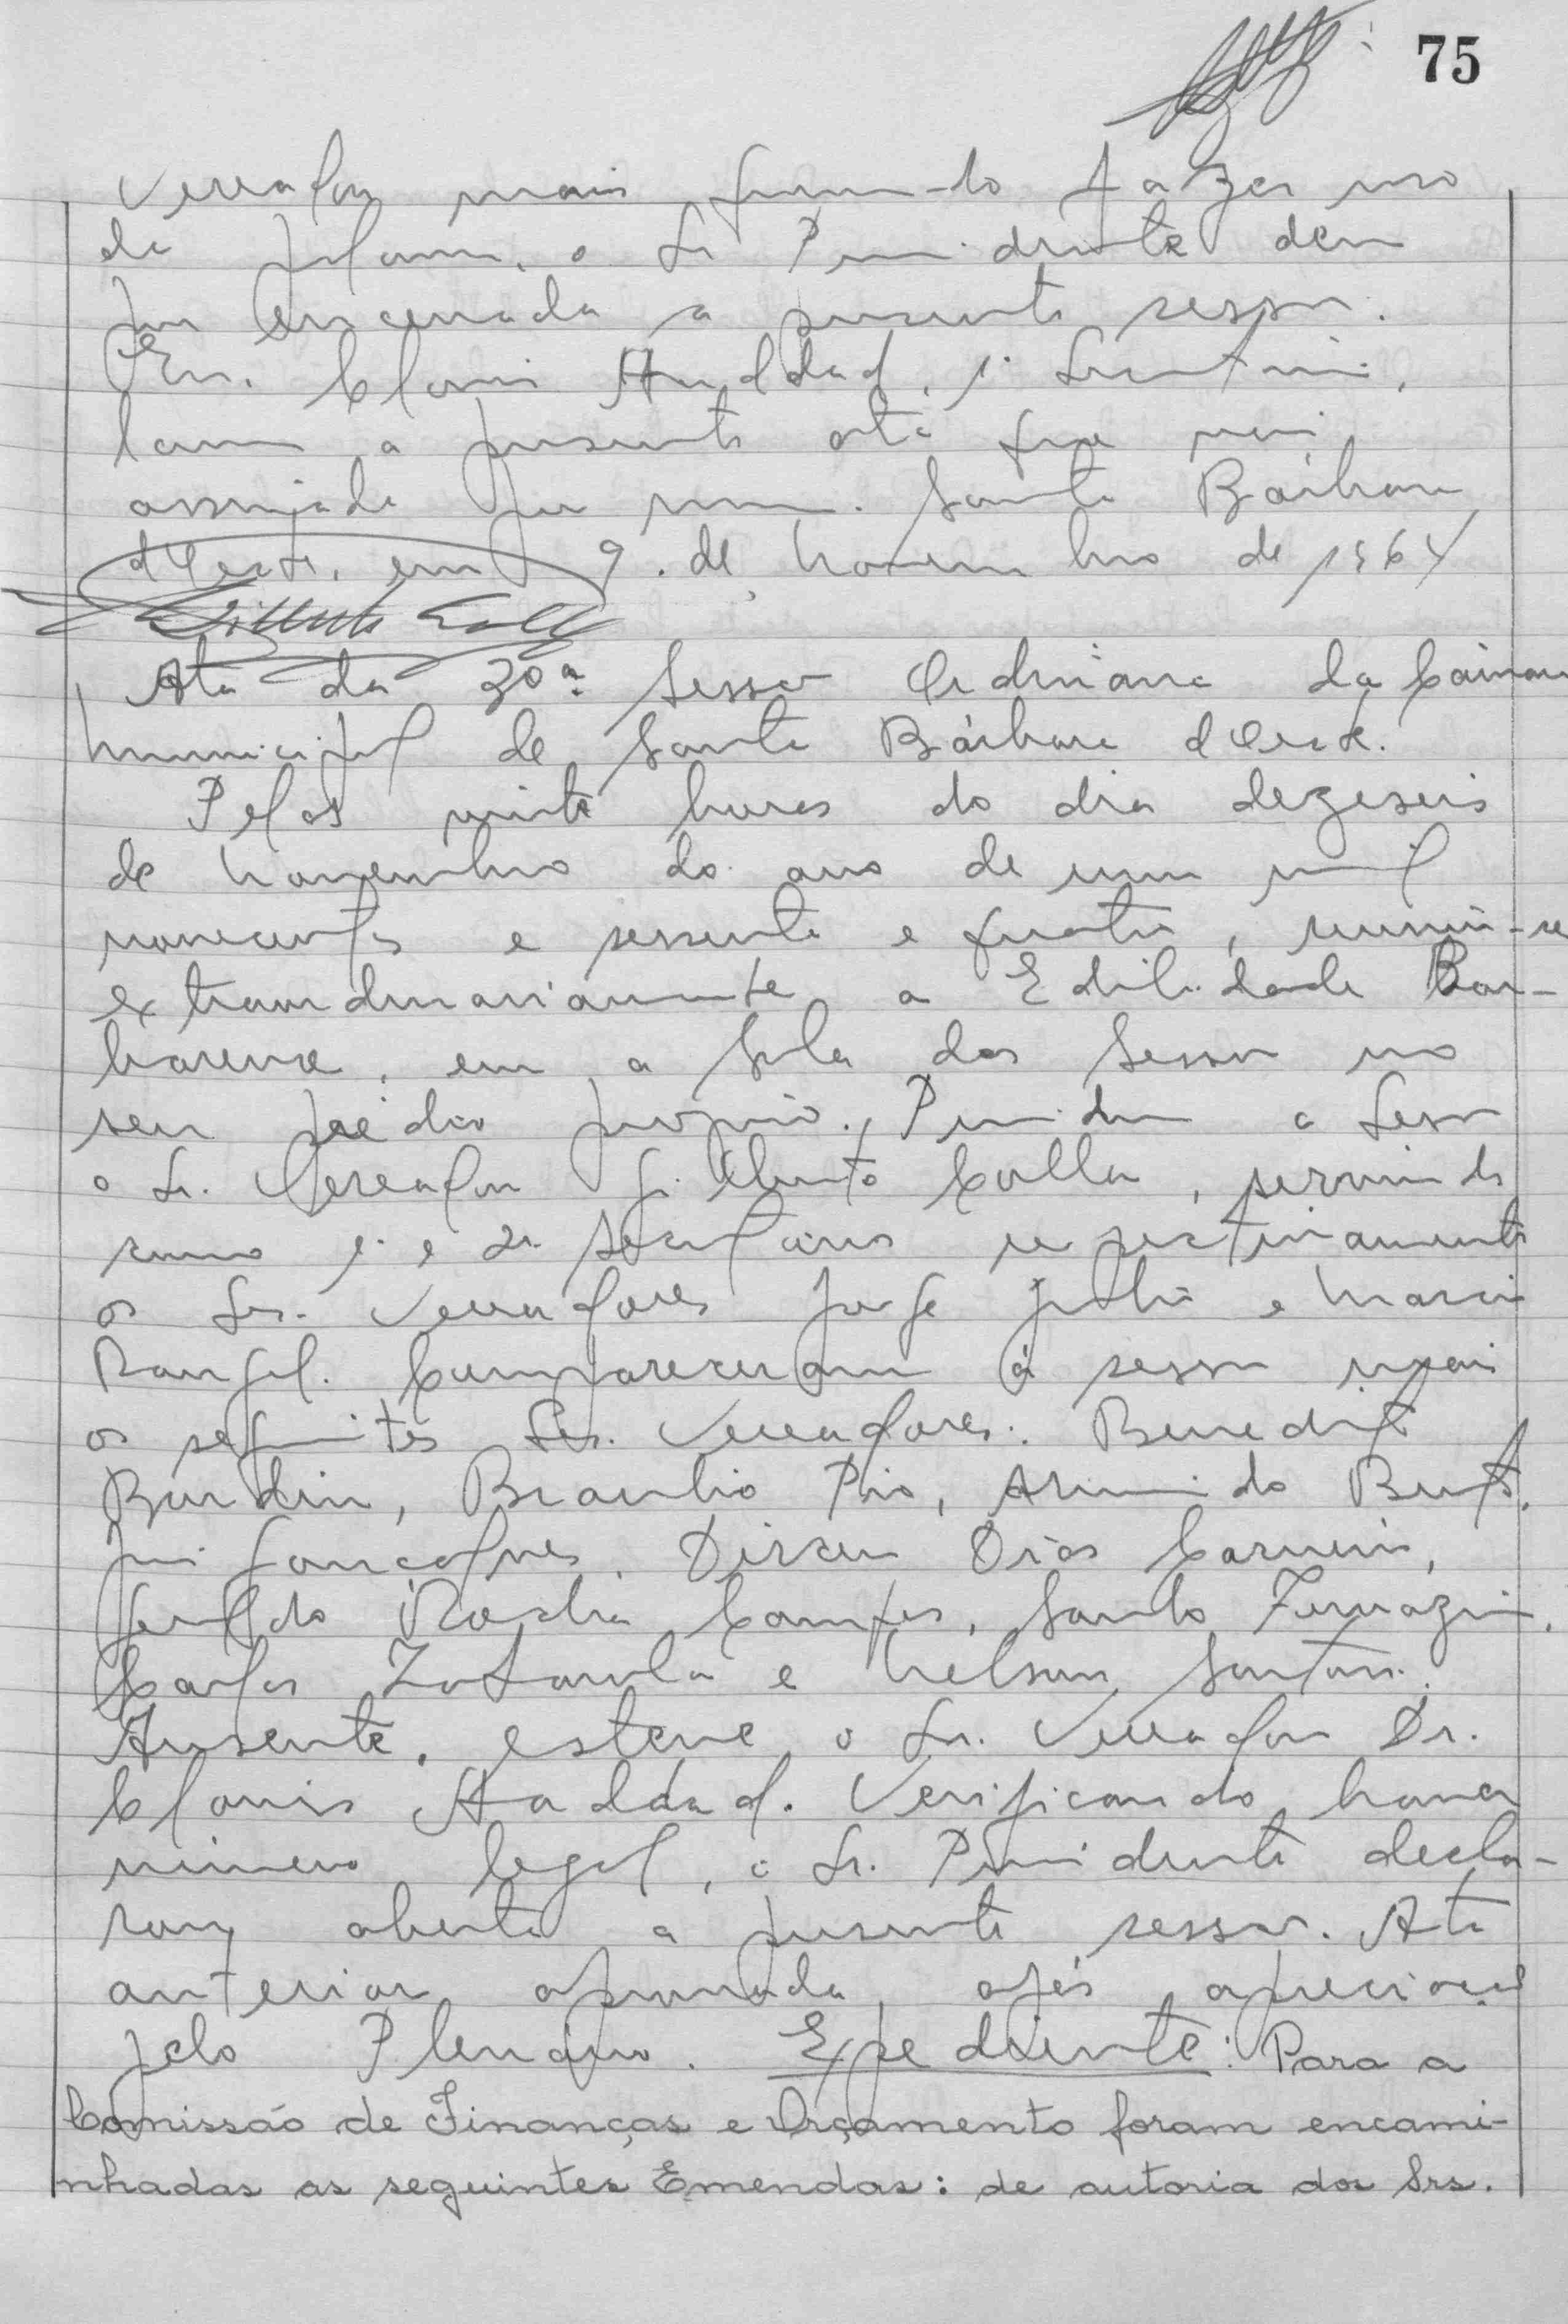 75
Vereador mais querendo fazer uso
da palavra, o Sr Presidente deu
por encerrada a presente sessão.
Eu, Clovis Haddad, 1º Secretário,
lavrei a presente ata que vai
assinada por mim. Santa Bárbara
d'Oeste, em 9 de Novembro de 1964
Ata da 30ª Sessão Ordinária da Câmara
Municipal de Santa Bárbara d'Oeste.
Pelas vinte horas do dia dezeseis
de Novembro do ano de um mil
novecentos e sessenta e quatro, reuniu-se
extraordinariamente a Edilidade Bar-
barense, em a Sala das Sessões no
seu prédio próprio. Presidiu a Sessão
o Sr. Vereador Gilberto Colla, servindo
como 1º e 2º Secretários respectivamente
os Srs. Vereadores Jorge Julio e Mario
Rangel. Compareceram à sessão mais
os seguintes Srs. Vereadores: Benedito
Bardin, Braulio Pio, Arlindo
Gonçalves, Dirceu Dias Carneiro,
Geraldo Rocha Campos, Santo
Carlos e Nelson
Ausente, esteve o Sr. Vereador Dr.
Clovis Haddad. Verificando haver
número legal, o Sr. Presidente decla-
rou aberta a presente sessão. Ata
anterior aprovada após
pelo Plenário. Expediente: Para a
Comissão de Finanças e Orçamento foram encami-
nhadas as seguintes Emendas: de autoria dos Srs.